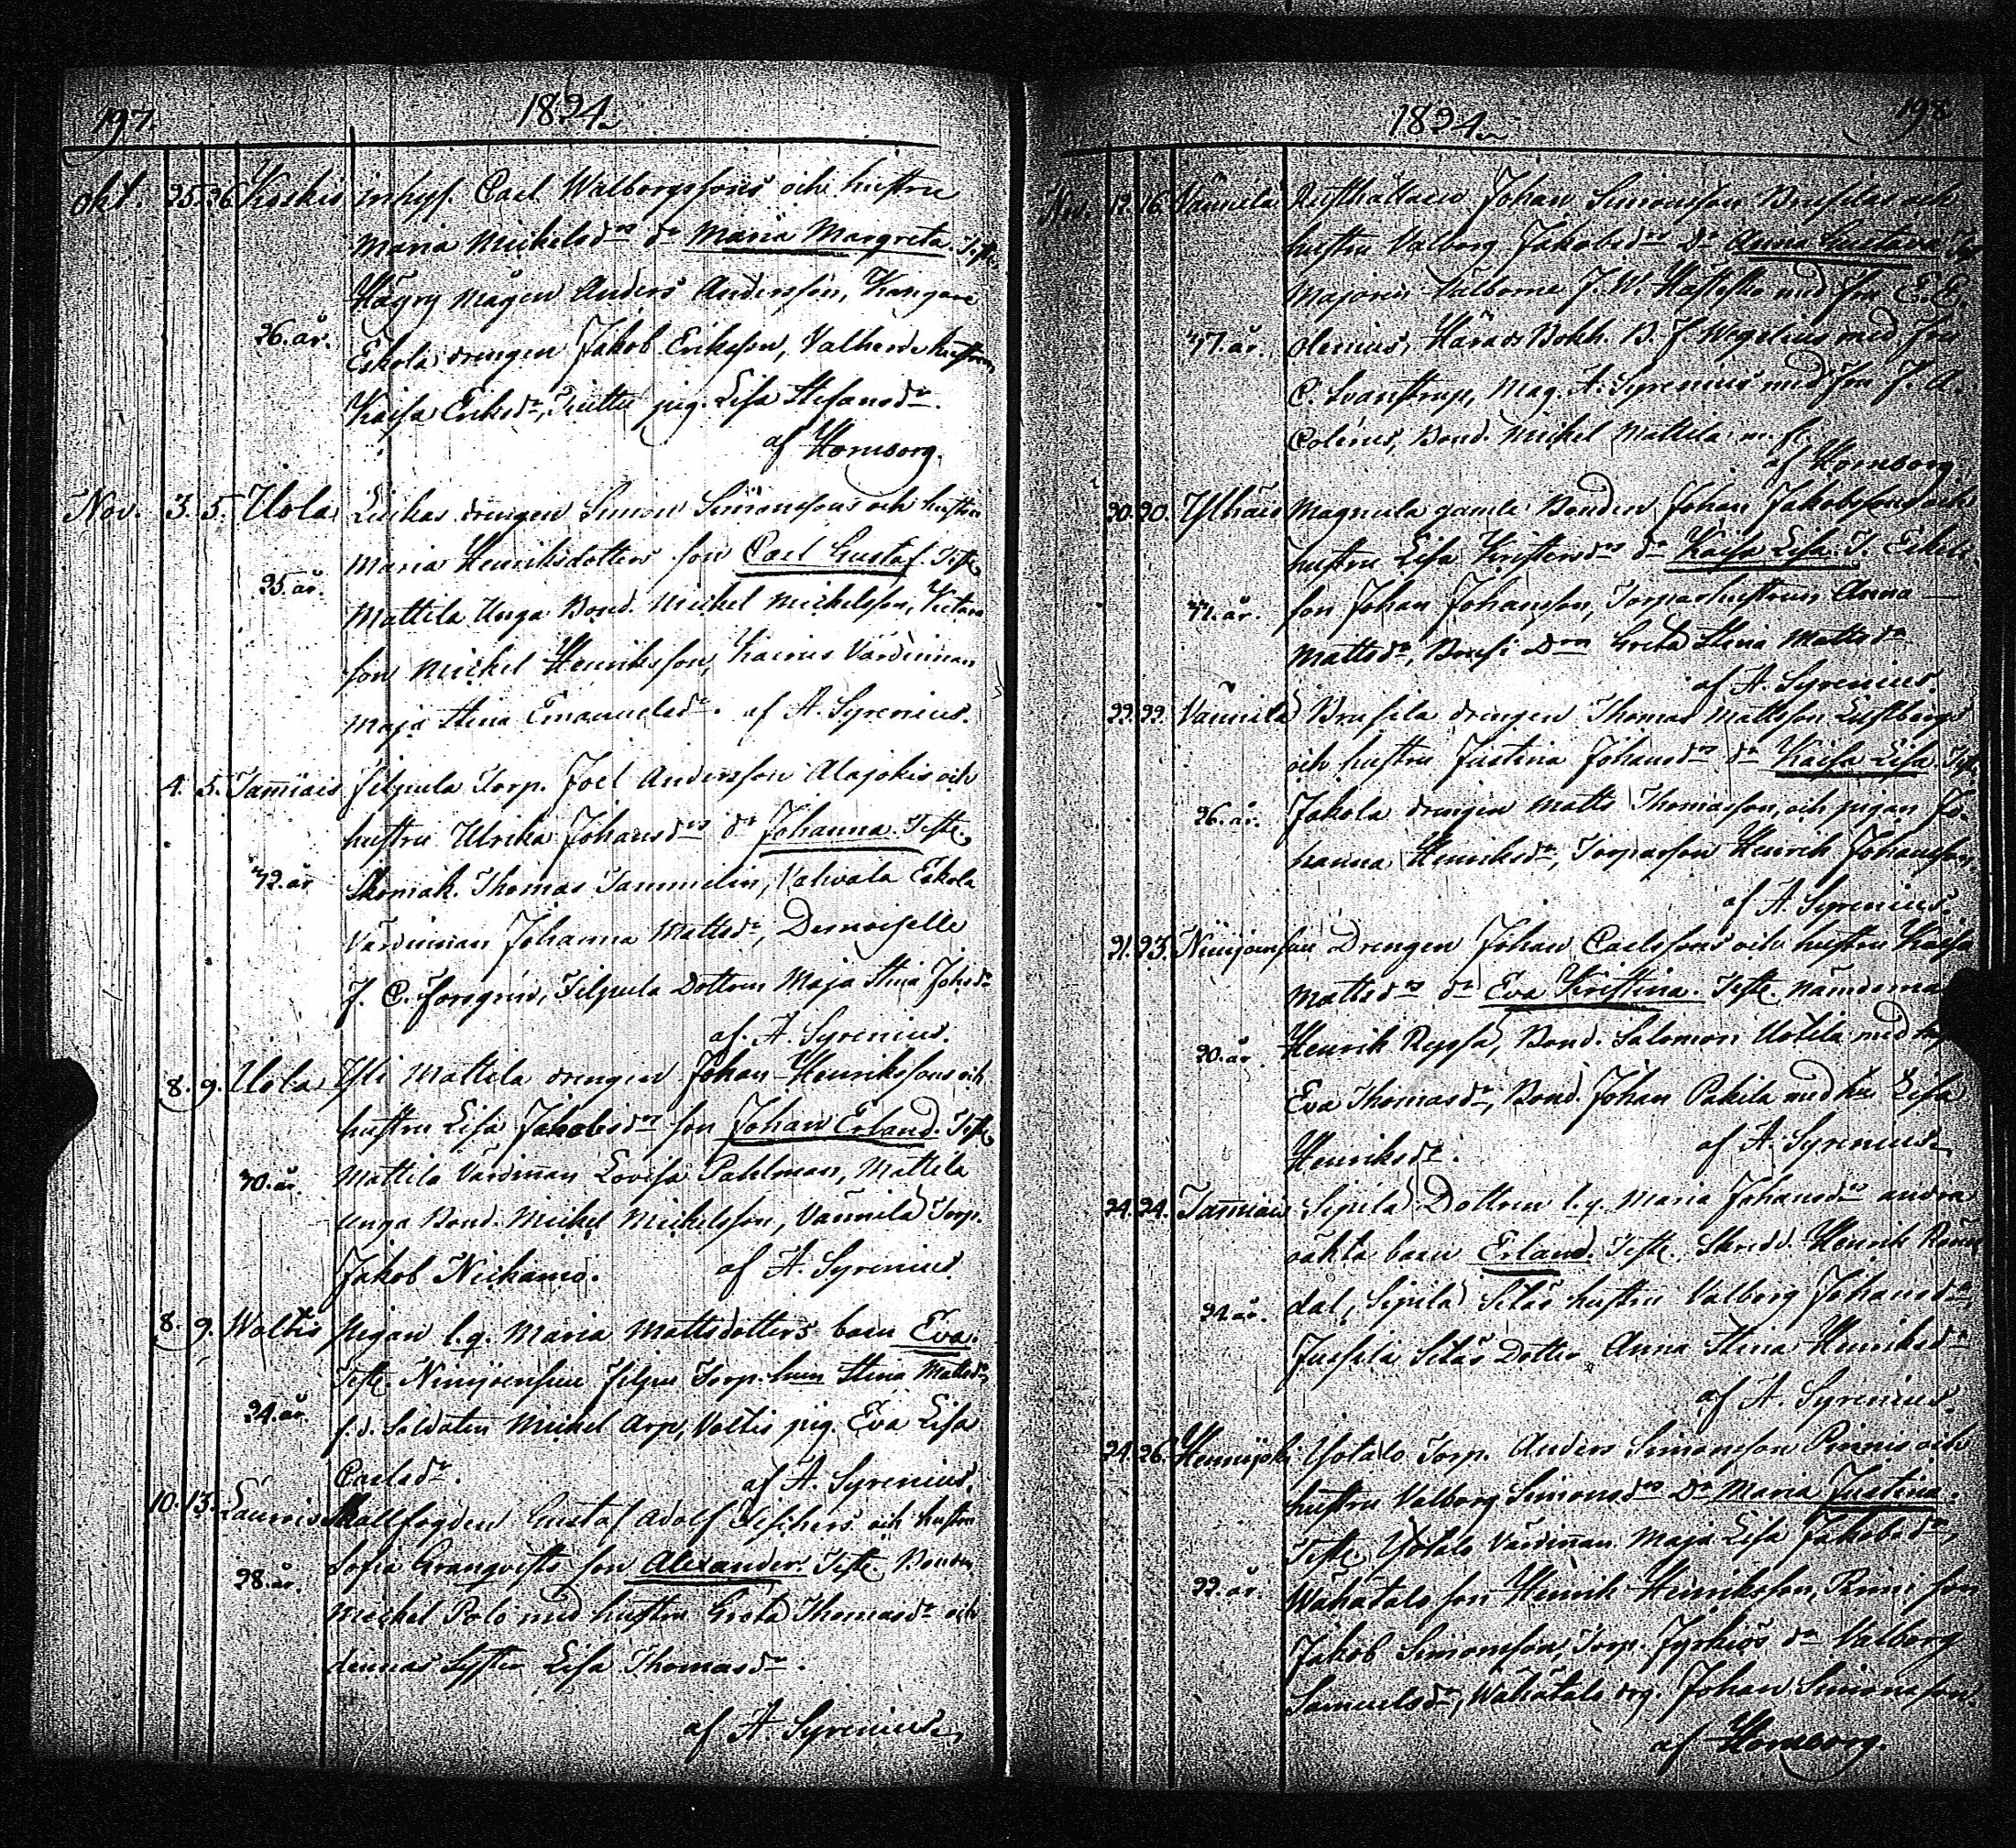 197.
1824.
Okt. 25. 26. Koskis inhys. Carl Walborgssons och hustru
Maria Mickelsdrs dr Maria Margreta. Test.
Hägry mågen Anders Andersson, Kangare
26. år. Eskola drengen Jakob Eriksson, hustrun
Kaisa Eriksdr, pig. Lisa Stefansdr.
af Hornborg.
Nov. 3. 5. Uola Luikas drengen Simon Simonssons och hustru
Maria Henriksdotters son Carl Gustaf. Test.
25. år. Mattila Unga Bond. Mickel Mickelsson,
son Mickel Henriksson, Värdinnan
Maja Stina Emanuelsdr. af A. Syrenius.
4. 5. Tam̄iais Filpula Torp. Joel Andersson Alajokis och
hustru Ulrika Johansdrs dr Johanna. Test.
42. år Skomak. Thomas Tammelin, Vahvala Eskola
Värdinnan Johanna Mattsdr, Demoiselle
J. C. Forsgrén, Filpula Dottren Maja Stina Johsdr
af A. Syrenius.
8. 9. Uola Yli Mattila drengen Johan Henrikssons och
hustru Lisa Jakobsdrs son Johan Erland. Test.
40. år. Mattila Värdiñan Lovisa Pahlman, Mattila
unga Bond. Mickel Mickelsson, Vännilä Torp.
Jakob Niekamo. af A. Syrenius.
8. 9. Waltis Pigan l.q. Maria Mattsdotters barn Eva.
Test. Ninijoensuu Filpus Torp. hun Stina Mattsdr,
24. år. f.d. Soldaten Mickel Arp, Voltis pig. Eva Lisa
Carlsdr. af A. Syrenius.
10. 13. Laurois Stallfogden Gustaf Adolf Fischers och hustru
Sofia Granqvists son Alexander. Test. Bonden
28. år. Mickel Polo med hustru Greta Thomasdr och
dennas Syster Lisa Thomasdr.
af A. Syrenius.
1824.
198
Nov. 12. 16. Vännilä Rusthållaren Johan Simonsson Brusilas och
hustru Valborg Jakobsdrs Dr Anna Gustava. Test.
Majoren Välborne J. W. Hästesko med fru E. E.
47. år. Olenius, Härads Bokh. B. J. Wegelius med fru
C. Svanström, Mag. A. Syrenius med fru J. A.
Polenus, Bond. Mickel Mattila m. fl.
af Hornborg
20. 20. Ylhäis Magnula gamle Bonden Johan Jakobssons och
hustru Lisa Kristersdrs dr Kaisa Lisa. T. Eskola
41. år. son Johan Johansson, Torparhustrun Anna
Mattsdr, Bensi Drn Greta Stina Mattsdr
af A. Syrenius.
22. 22. Vännilä Brusila drengen Thomas Mattsson Lustbergs
och hustru Justina Johansdrs dr Kaisa Lisa. Test.
26. år. Jakola drengen Matts Thomasson, och pigan Jo-
hanna Henriksdr, Torparson Henrik Johansson.
af A. Syrenius.
21. 23. Ninijoensuu Drengen Johan Carlssons och hustru Kaisa
Mattsdrs dr Eva Kristina. Test. Nämdeman
30. år Henrik Reypsa, Bond. Salomon Uotila med
Eva Thomasdr, Bond. Johan Pakila med hu Lisa
Henriksdr. af A. Syrenius.
24. 24. Tam̄iais Sipilä Dottren l.q. Maria Johansdrs andra
oäkta barn Erland. Test. Skredd. Henrik
24. år. dal, Sipilä Sitas hustru Valborg Johansdr,
Jussila Sitas Dotter Anna Stina Henriksdr
af A. Syrenius.
24. 26. Hennijoki Yotalo Torp. Anders Simonsson Pinnis och
hustru Valborg Simonsdrs Dr Maria Justina.
Test. Yotalo Värdiñan Maja Lisa Jakobsdr,
22. år. Wähätalo son Henrik Henriksson, Pinni son
Jakob Simonsson, Torp. Jyrkiös dr Valborg
Samuelsdr, Wähätalo drg. Johan Simonsson.
af Hornborg.